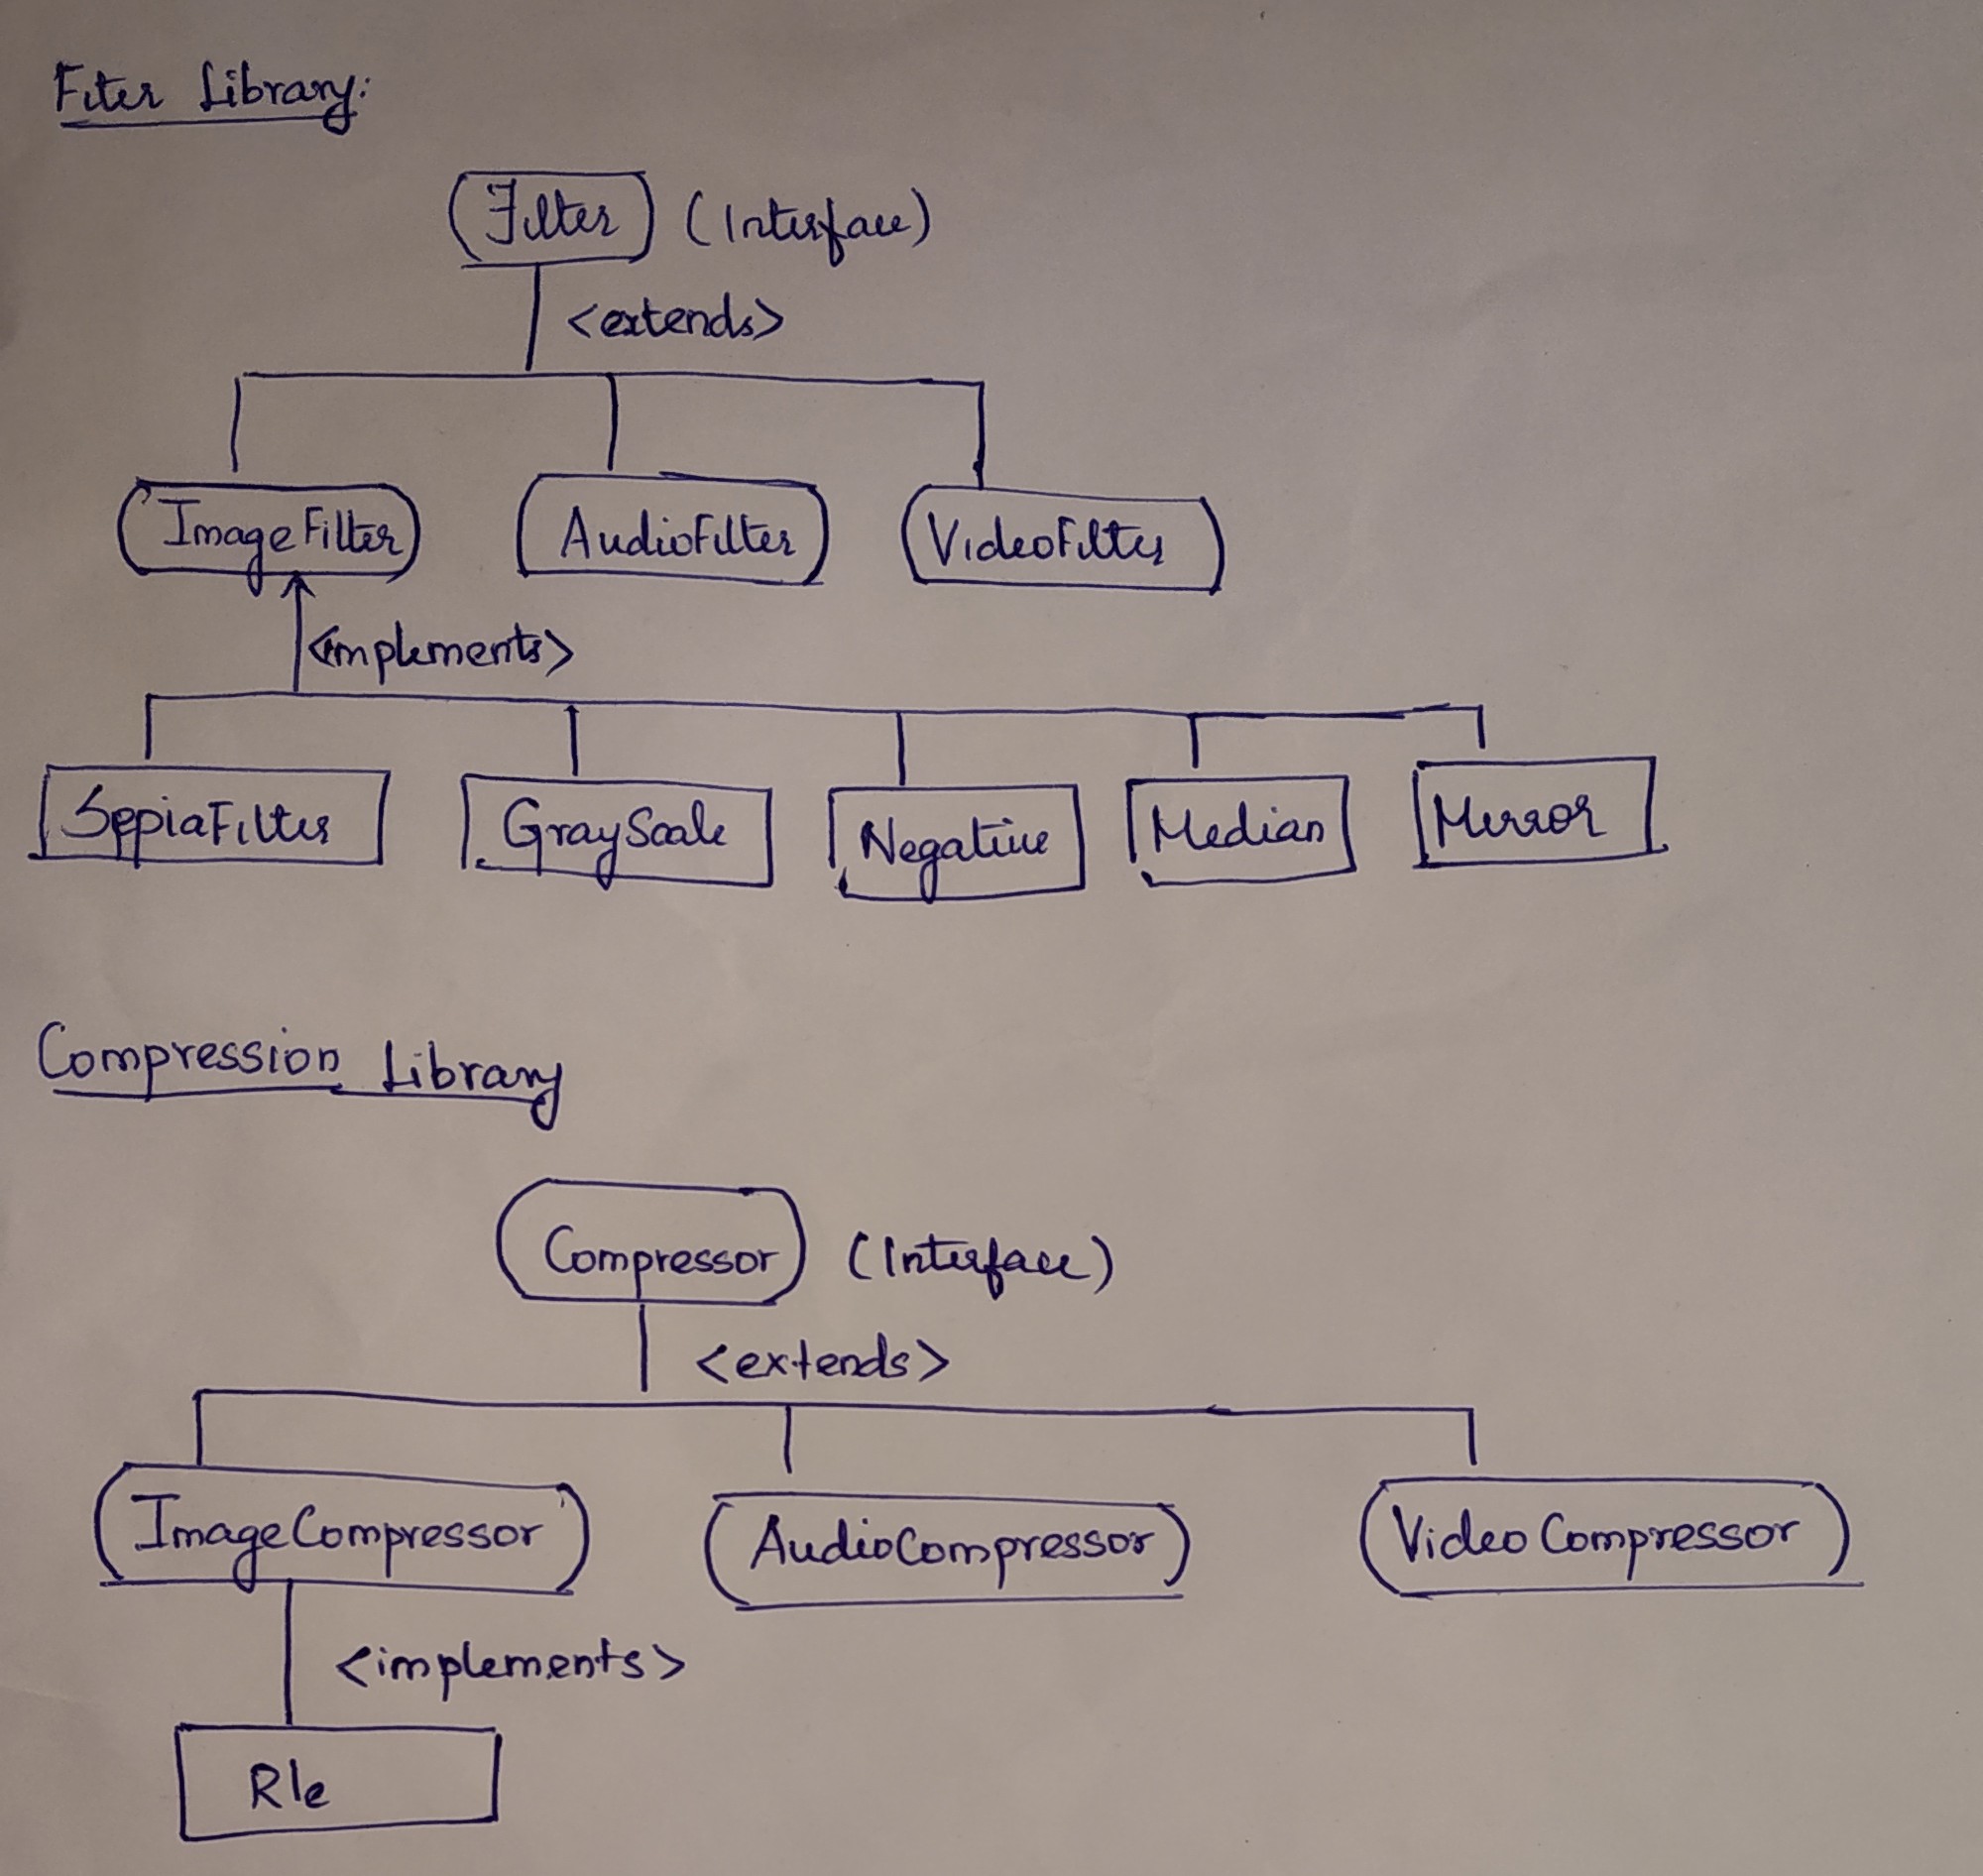 Fiter Library:
Filter (Interface)
<extends>
ImageFilter AudioFilter VideoFilter
<implements>
SepiaFilter GrayScale Negative Median Mirror
Compression Library
Compressor (Interface)
<extends>
ImageCompressor AudioCompressor VideoCompressor
<implements>
Rle